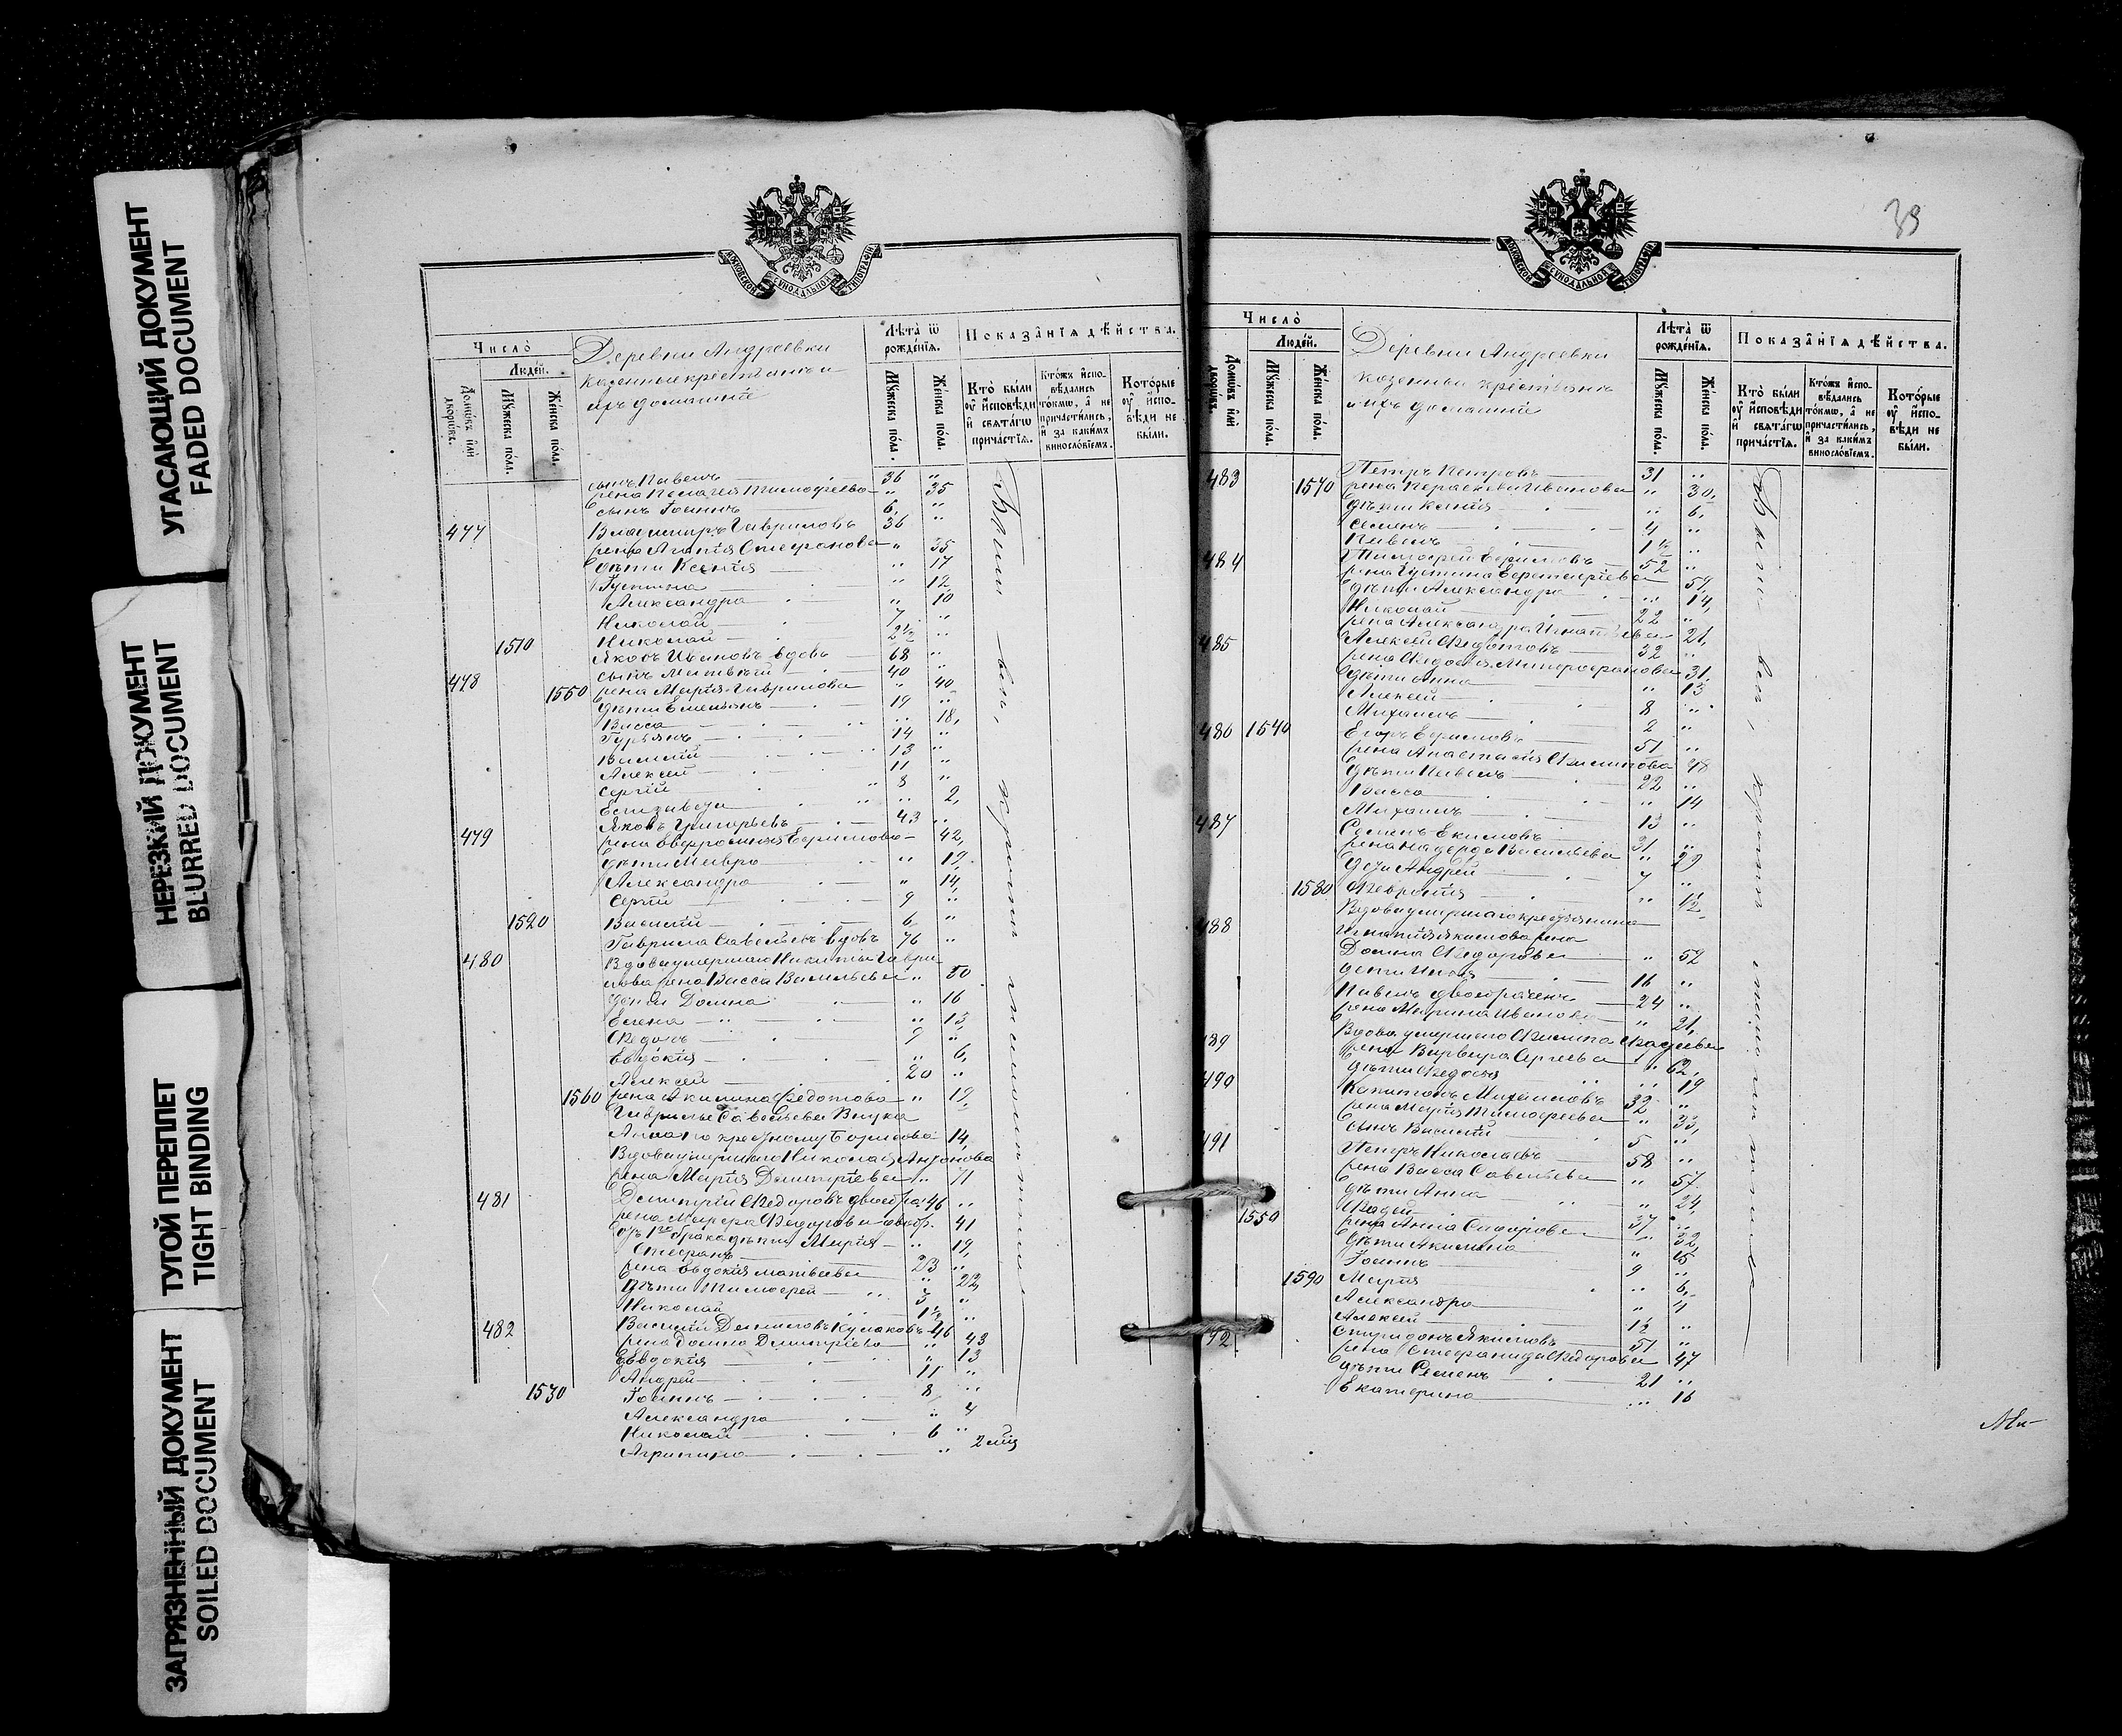 УГАСАЮЩИЙ ДОКУМЕНТ
FADED DOCUMENT
НЕРЕЗКИЙ ДОКУМЕНТ
BLURRED DOCUMENT
ТУГОЙ ПЕРЕПЛЕТ
TIGHT BINDING
ЗАГРЯЗНЕННЫЙ ДОКУМЕНТ
SOILED DOCUMENT
МОСКОВСКОЙ СѴНОДАЛЬНОЙ ТИПОГРАФІИ
Число̀
Людéй.
Домѡ́въ и҆лѝ дворѡ́въ.
Мꙋ́жеска пóла.
Жéнска пóла.
Деревни Андреевки
казенные крестьянъ и
ихъ домашніе
Лѣ́та ѿ рождéнїѧ.
Мꙋ́жеска пóла.
Жéнска пóла.
Показа̂нїѧ дѣ́йства.
Кто̀ бы́ли ᲂу҆ и҆сповѣ́ди и҆ свѧта́гѡ причáстїѧ.
Кто́жъ и҆спо-
вѣ́дались то́кмѡ, а҆ не причасти́лись, и҆ за каки́мъ винослóвїемъ.
Кото́рые ᲂу҆ и҆спо-
вѣ́ди не бы́ли.
сынъ Павелъ 36 "
жена Пелагея Тимофеева " 35
сынъ Іоаннъ 6 "
477 Владимиръ Гавриловъ 36 "
жена Агапія Стефанова " 35
дѣти Ксенія " 17
Іустина " 12
Александра " 10
Николай 7 "
1510 Николай 2½ "
Яковъ Ивановъ вдовъ 68 "
сынъ Матвѣй 40 "
478 1550 жена Марія Гаврилова " 40
дѣти Емельянъ 19 "
Васса " 18
Гурьянъ 14 "
Василій 13 "
Алексей 11 "
Сергій 3 "
Елизавета " 2
Яковъ Григорьевъ 43 "
479 жена Евфросинія Ефимова " 42
дѣти Мавра " 19
Александра " 14
Сергій 9 "
1520 Василій 6 "
Гаврила Савельевъ вдовъ 76 "
480 Вдова умершаго Никиты Гаври-
лова жена Васса Васильева " 50
дѣти Домна " 16
Елена " 13
Ѳедотъ 9 "
Евдокія " 6
Алексей 20 "
1560 жена Акилина Ѳедотова " 19
Гаврилы Савельева внука
Анна по крестному Борисова 14
Вдова умершаго Николая Антонова
жена Марія Димитріева " 71
481 Димитрій Ѳедоровъ двоебра. 46 "
жена Марфа Ѳедорова двобр. 41
отъ 1го брака дѣти Марія " 19
Стефанъ 23 "
жена Евдокія Матвеева " 22
дѣти Тимофей 3 "
Николай 1½ "
482 Василій Даниловъ Кулаковъ 46
жена Домна Димитріева " 43
Евдокія " 13
Андрей 11 "
1530 Іоаннъ 8 "
Александра " 4
Николай 6 "
Агрипина " 2 мѣс
Были вси, кромѣ малолѣтнихъ
39
МОСКОВСКОЙ СѴНОДАЛЬНОЙ ТИПОГРАФІИ
Число̀
Людéй.
Домѡ́въ и҆лѝ дворѡ́въ.
Мꙋ́жеска пóла.
Жéнска пóла.
Деревни Андреевки
казенныи крестьянъ
и ихъ домашніе
Лѣ́та ѿ рождéнїѧ.
Мꙋ́жеска пóла.
Жéнска пóла.
Показа̂нїѧ дѣ́йства.
Кто̀ бы́ли ᲂу҆ и҆сповѣ́ди и҆ свѧта́гѡ причáстїѧ.
Кто́жъ и҆спо-
вѣ́дались то́кмѡ, а҆ не причасти́лись, и҆ за каки́мъ винослóвїемъ.
Кото́рые ᲂу҆ и҆спо-
вѣ́ди не бы́ли.
483 Петръ Петровъ 31 "
1570 жена Параскева Иванова " 30
дѣти Ксенія " 6
Семенъ 4 "
Павелъ 1½ "
484 Тимофей Ефимовъ 52 "
жена Іустина " 59
дѣти Александра " 14
Николай 22 "
жена Александра Игнатьева 21
485 Алексей Ѳедотовъ 32 "
жена Ѳедосія Митрофанова 31
дѣти Анна " 13
Алексей 8 "
Михаилъ 2 "
486 1540 Егоръ Ефимовъ 51 "
жена Анастасія Филипова 48
дѣти Павелъ 22 "
Васса " 14
Михаилъ 13 "
487 Семенъ Екимовъ 31 "
жена Надежда Васильева " 29
дѣти Андрей 7 "
1580 Ѳевронія " ½
488 Вдова умершаго крестьянина
Игнатія Якимова жена
Домна Ѳедорова " 52
дети Илья 16 "
Павелъ двоебраченъ 24 "
жена Марина Иванова " 21
489 Вдова умершаго Филипа Фадеева
жена Варвара Сергеева " 62
дѣти Ѳедосія " 19
490 Капитонъ Михаиловъ 32 "
жена Марія Тимофеева " 33
сынъ Василій 5 "
491 Петръ Николаевъ 58 "
жена Васса Савельева " 57
дѣти Анна " 24
1550 Фадей 37 "
жена Анна Сидорова " 32
дѣти Акилина " 15
Іоаннъ 9 "
1590 Марія " 6
Александра " 4
Алексей 1½ "
492 Спиридонъ Якимовъ 51 "
жена Стефанида Ѳедорова 47
дѣти Семенъ 21 "
Екатерина " 16
Были вси, кромѣ малолѣтнихъ